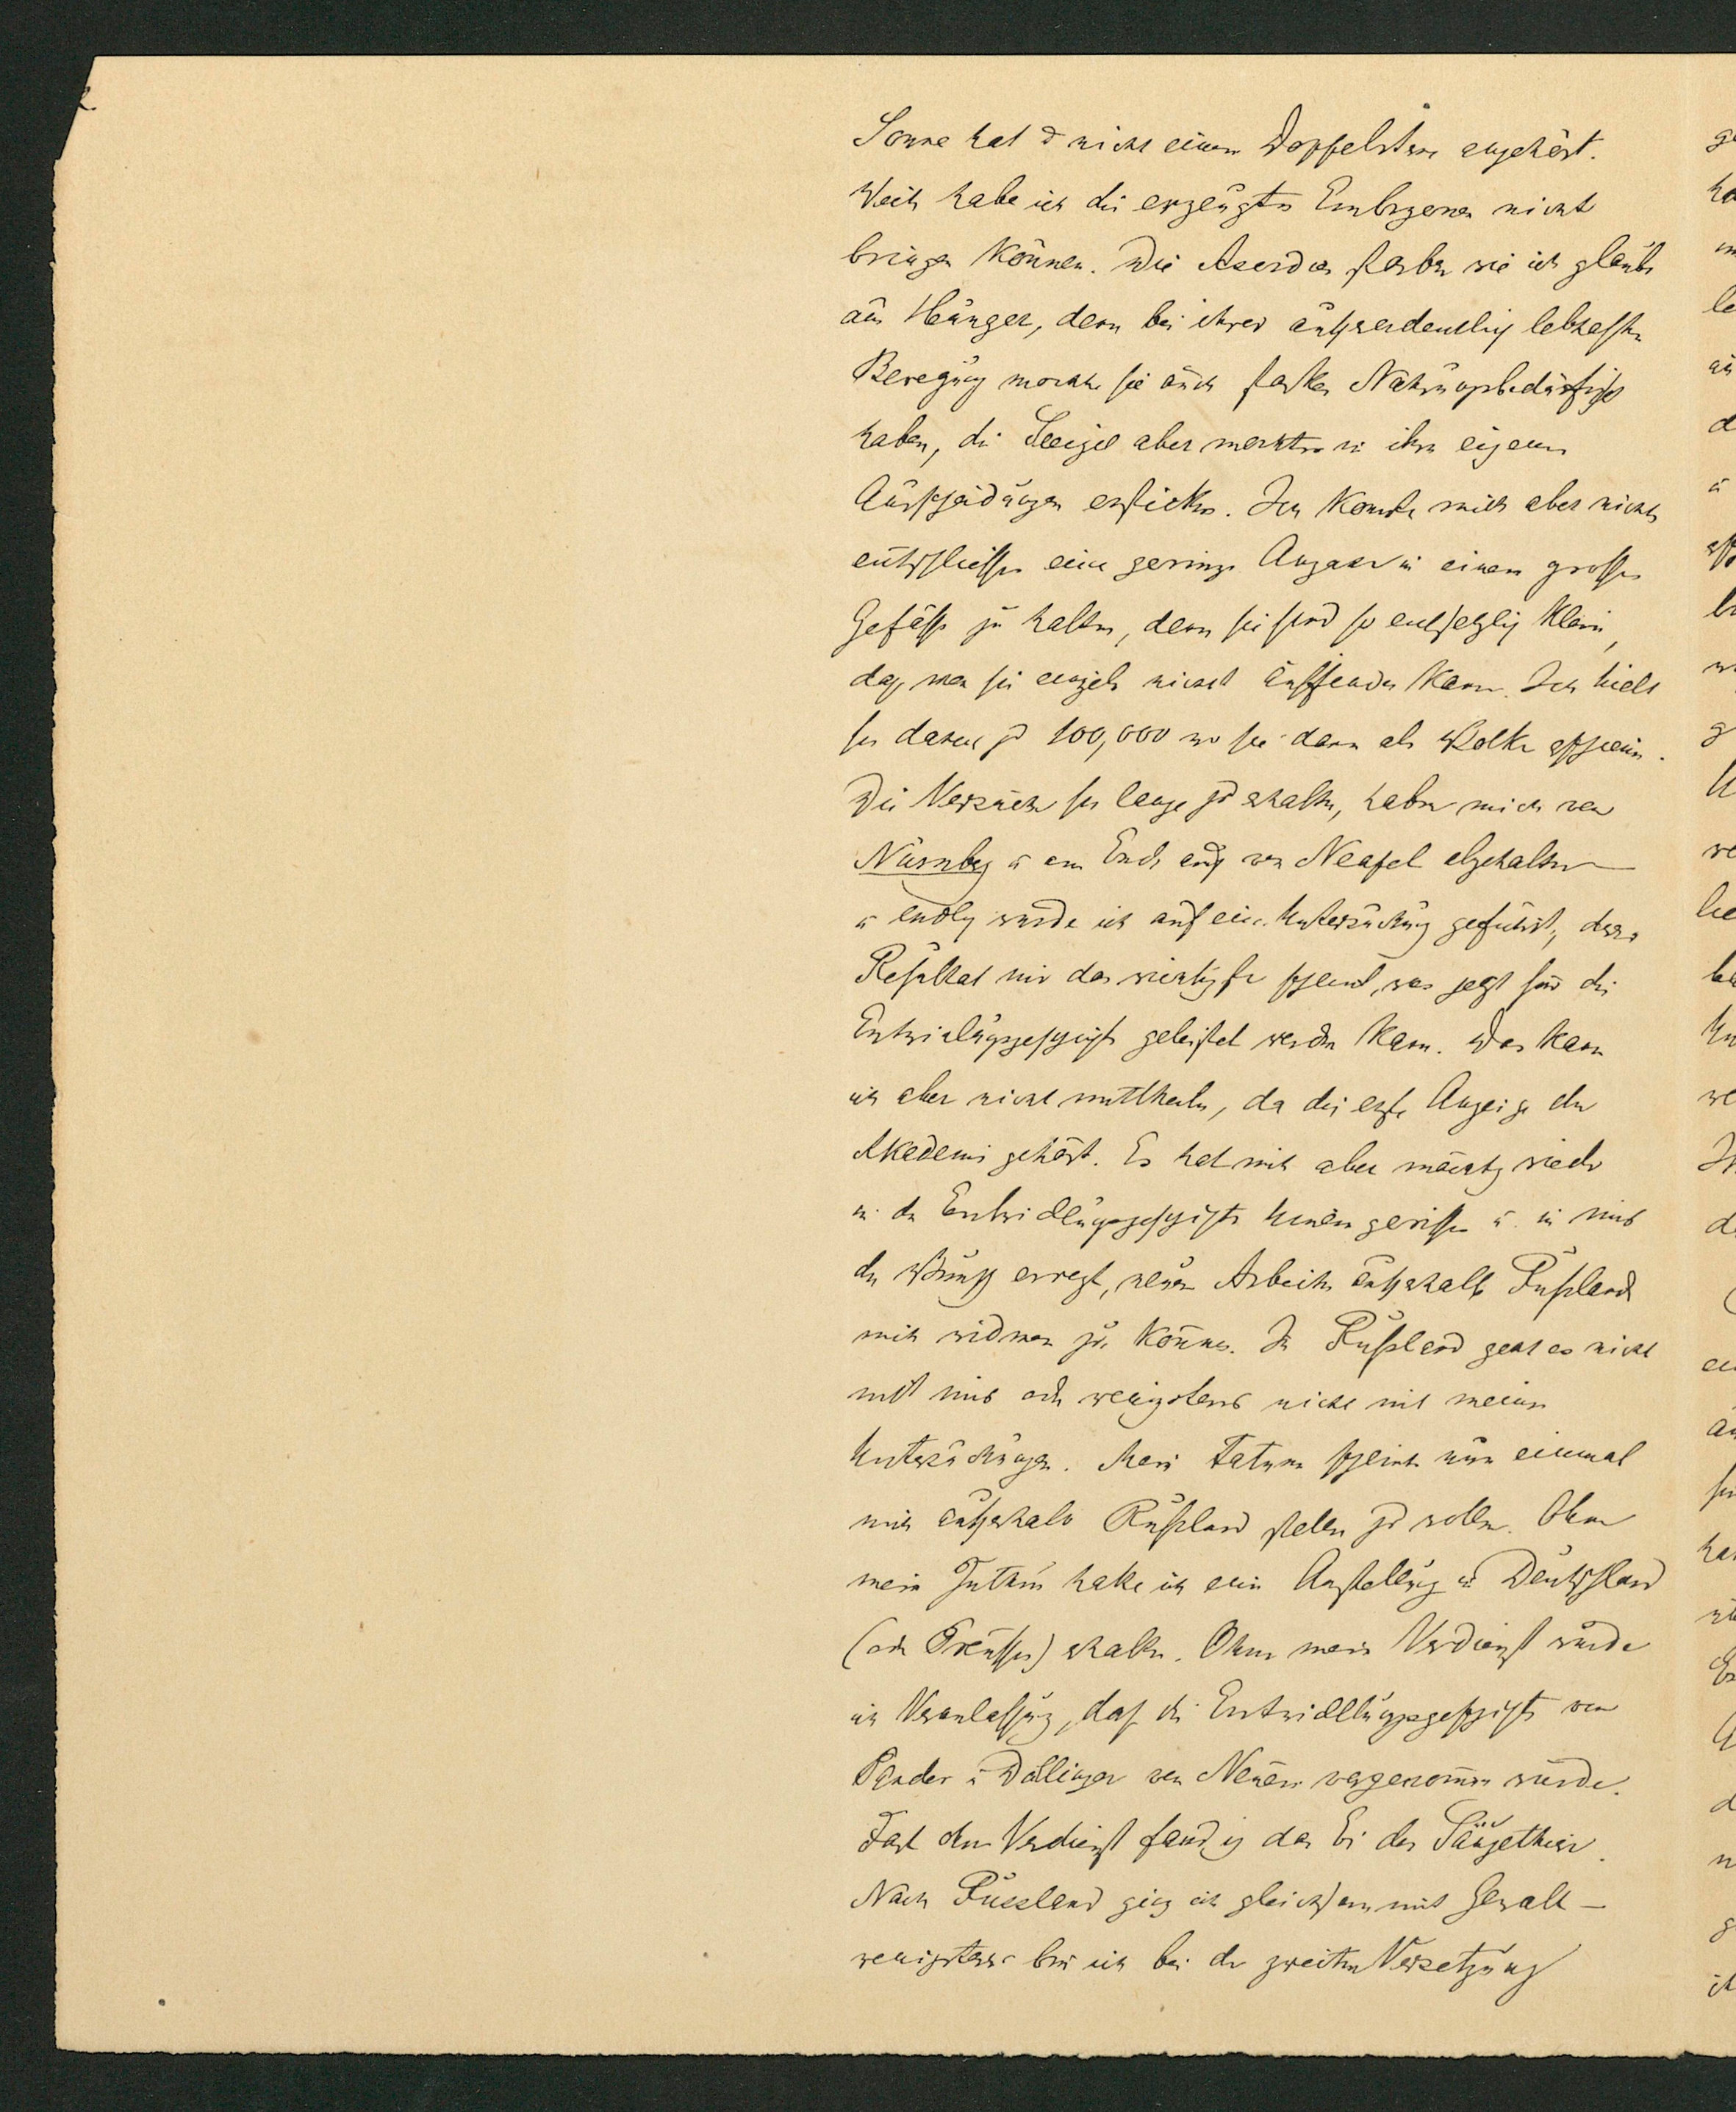 Sonne hat d nicht einem Doppelstern angehört.
Weit habe ich die erzeugten Embryonen nicht
bringen können. Die Ascidien starben wie ich glaube
aus Hunger, denn bei ihrer außerordentlich lebhaften
Bewegung mochten sie auch starkes Nahrungsbedürfniß
haben, die Seeigel aber mochten in ihren eigenen
Ausscheidungen ersticken. Ich konnte mich aber nicht
entschliessen eine geringe Anzahl in einem grossen
Gefäss zu halten, denn sie sind so entsetzlich klein,
daß man sie einzeln nicht auffinden kann. Ich hielt
sie daher zu 100,000 wo sie dann als Wolke erscheinen.
Die Versuche sie lange zu erhalten, haben mich von
Nürnberg u am Ende auch von Neapel abgehalten
u endlich wurde ich auf eine Untersuchung geführt, deren
Resultat mir das wichtigste scheint, was jetzt für die
Entwicklungsgeschichte geleistet werden kann. Das kann
ich aber nicht mittheilen, da die erste Anzeige der
Akademie gehört. Es hat mich aber mächtig wieder
in die Entwicklungsgeschichte hineingerissen u. in mir
den Wunsch erregt, neuen Arbeiten außerhalb Rußlands
mich widmen zu können. In Rußland geht es nicht
mit mir oder wenigstens nicht mit meinen
Untersuchungen. Mein Fatum scheint nun einmal
mich außerhalb Rußland stellen zu wollen. Ohne
mein Zuthun hatte ich eine Anstellung in Deutschland
(oder Preussen) erhalten. Ohne mein Verdienst wurde
ich Veranlassung, daß die Entwicklungsgeschichte von
Pander u Döllinger von Neuem vorgenommen wurde.
Fast ohne Verdienst fand ich das Ei der Säugethiere.
Nach Russland ging ich gleichsam mit Gewalt –
wenigstens bin ich bei der zweiten Versetzung